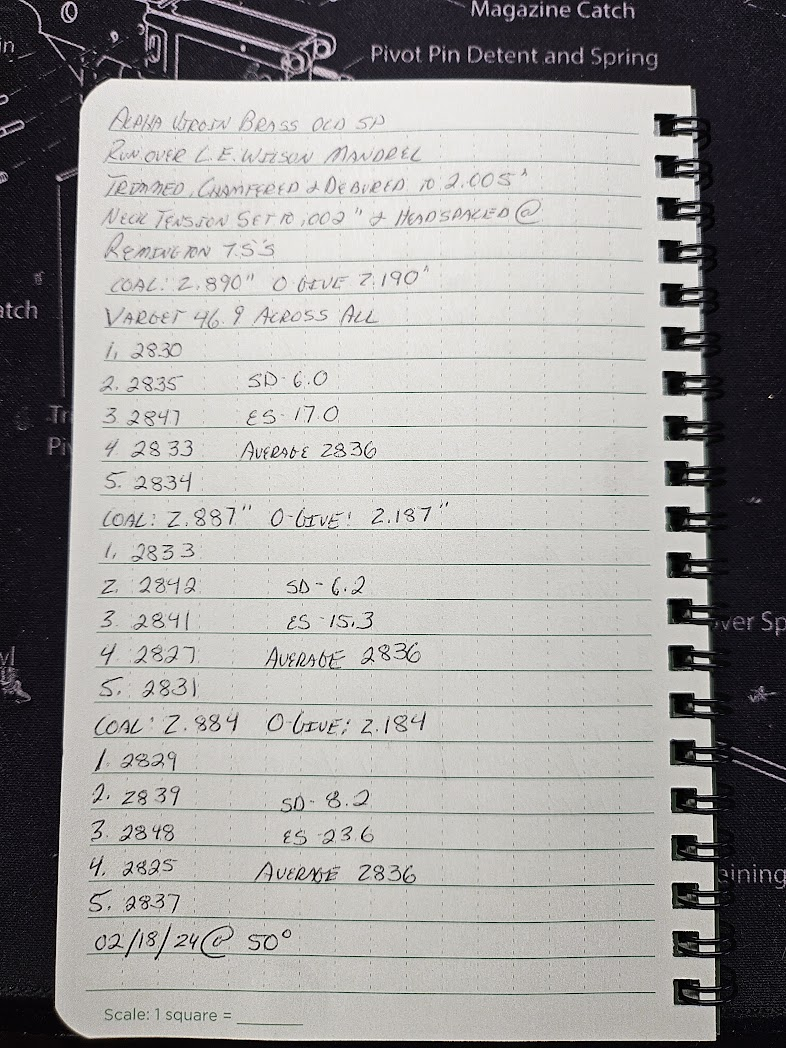 Magazine Catch
Pivot Pin Detent and Spring
in
atch
Tr
Pi
wl
ver Sp
aining
ALPHA VIRGIN BRASS OCD SP
RUN OVER L.E. WILSON MANDREL
TRIMMED, CHAMFERED & DEBURED TO 2.005"
NECK TENSION SET TO .002" & HEADSPACED @
REMINGTON 7.5'S
COAL: 2.890" O GIVE 2.190"
VARGET 46.9 ACROSS ALL
1. 2830
2. 2835 SD-6.0
3. 2847 ES-17.0
4. 2833 AVERAGE 2836
5. 2834
COAL: 2.887" O-GIVE: 2.187"
1. 2833
2. 2842 SD-6.2
3. 2841 ES-15.3
4. 2827 AVERAGE 2836
5. 2831
COAL: 2.884 O-GIVE: 2.184
1. 2829
2. 2839 SD-8.2
3. 2848 ES-23.6
4. 2825 AVERAGE 2836
5. 2837
02/18/24 @ 50°
Scale: 1 square = ______